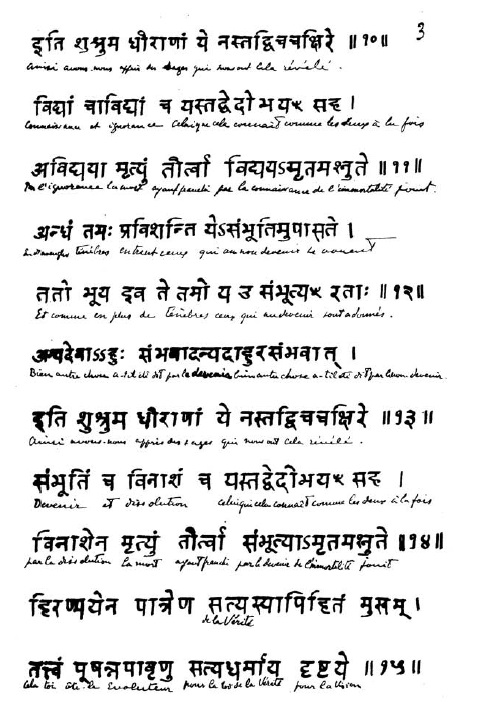 3
इति शुश्रुम धीराणां ये नस्तद्विचचक्षिरे ॥१०॥
Ainsi avons-nous appris des sages qui nous ont cela révélé.
विद्यां चाविद्यां च यस्तद्वेदोभयꣳ सह ।
Connaissance et ignorance Celui qui cela connaît comme les deux à la fois
अविद्यया मृत्युं तीर्त्वा विद्ययाऽमृतमश्नुते ॥११॥
Par l'ignorance la mort ayant franchi par la connaissance de l'immortalité jouit.
अन्धं तमः प्रविशन्ति येऽसंभूतिमुपासते ।
ténèbres entrent ceux qui au non devenir se vouent
ततो भूय इव ते तमो य उ संभूत्यꣳ रताः ॥१२॥
Et comme en plus de ténèbres ceux qui au devenir sont adonnés.
अन्यदेवाऽऽहुः संभवादन्यदाहुरसंभवात् ।
Bien autre chose a-t-il été dit par le devenir bien autre chose a-t-il été dit par le non-devenir.
इति शुश्रुम धीराणां ये नस्तद्विचचक्षिरे ॥१३॥
Ainsi avons-nous appris des sages qui nous ont cela révélé.
संभूतिं च विनाशं च यस्तद्वेदोभयꣳ सह ।
Devenir et dissolution celui qui cela connaît comme les deux à la fois
विनाशेन मृत्युं तीर्त्वा संभूत्याऽमृतमश्नुते ॥१४॥
par la dissolution la mort ayant franchi par le devenir de l'immortalité jouit
हिरण्मयेन पात्रेण सत्यस्यापिहितं मुखम् ।
de la Vérité
तत्त्वं पूषन्नपावृणु सत्यधर्माय दृष्टये ॥१५॥
Cela toi ôte-le Evoluteur pour la loi de la Vérité pour la vision